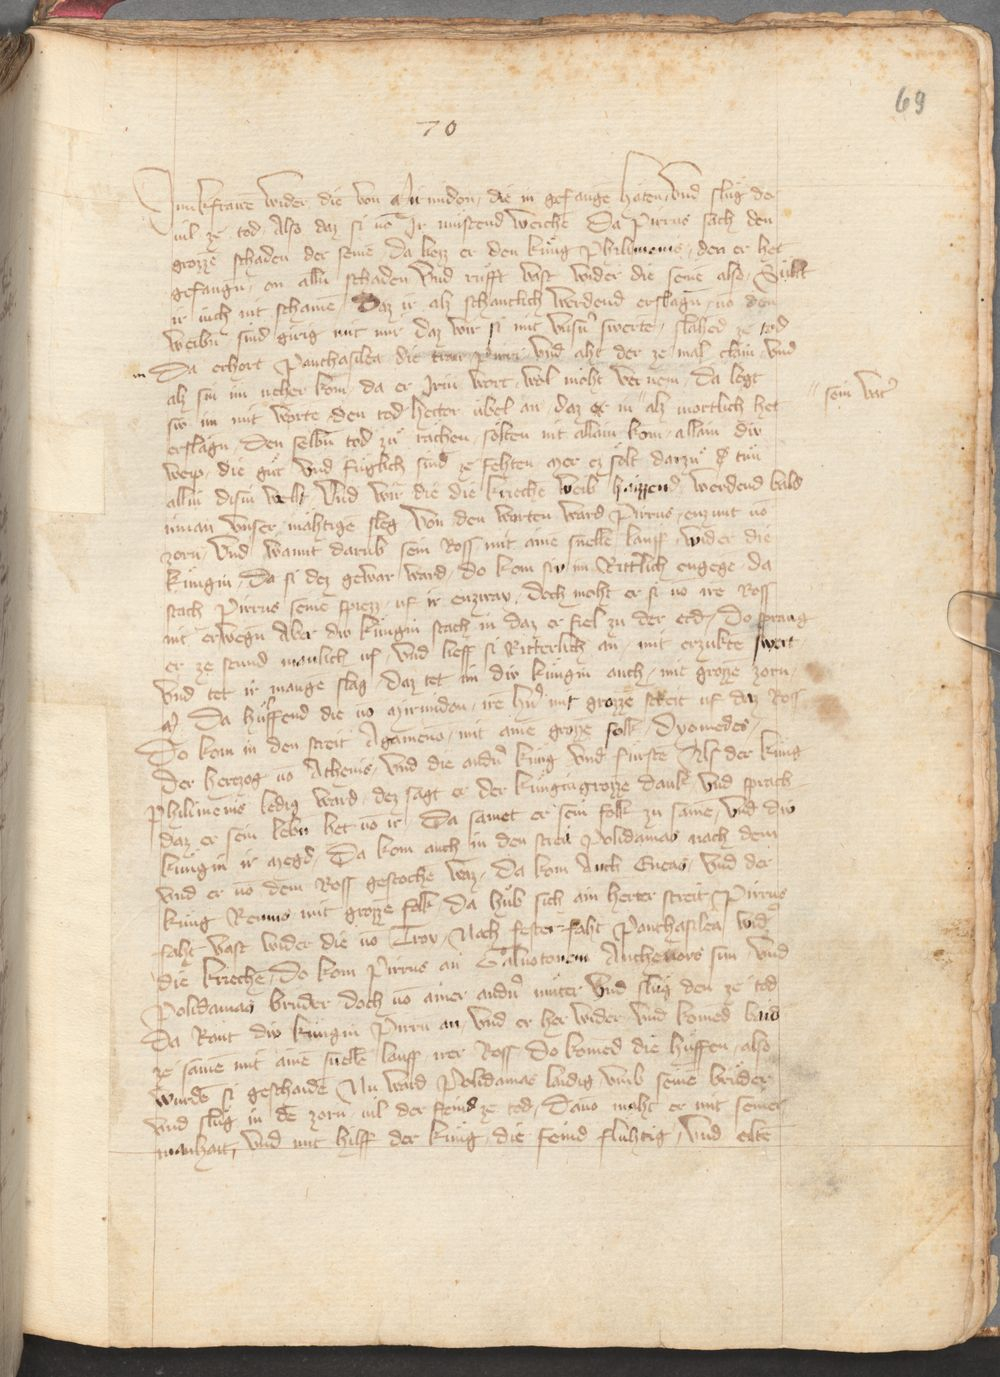 69
70
Junkfrawē wider die von Mirmidon, die in gefange haten, Vnd slůg der
vil ze tod, Also daz si nō Jr muistend weiche Da Pirrus sach den
grozzē schaden der seinē, Da liezz er den kūng Philimenis, den er het
gefangn, on alln schaden Vnd rüfft vast wider die seine also, Sült
ir iuch nit schame, Daz ir als schantlich werdend erslagn, vō den
weibn sind girig mit mir daz wir si mit vnsn swerte, slahed ze tod
Da erhort Panthasilea die traw Pirri vnd aht der ze mal clain, vnd
alz siu im neher kom, da er Jriu wort, wol moht vernem, Da legt
siv im mit worte den tod hector übel an, daz er in " alz mortlich het
" sein vat
erslagn, Den selbn tod zů rachen, sölten nit allain kom, allain div
weip, die gůt vnd füglich sind ze fehten mer ez sölt darzů tůn
alliu disiu welt, Vnd wir die die krieche weib haizzend, werdend bald
innan vnser mähtige sleg Von den worten ward Pirrus, enzunt vō
zorn, Vnd wannt darūb sein Ross mit aine snellē lauff, wider die
küngin, Da si dez gewar ward, do kom siv im Ritterlich engege, da
stach Pirrus seine spiezz, uf ir enzway, doch moht er si vō ire Ross
nit erwegn Aber div küngin stach in daz er fiel zu der erd, Do sprang
er ze stund manlich uf, Vnd lieff si Ritterlich an, mit erzukte swert
Vnd tet ir mange slag, daz tet im div küngin auch, mit grozze zorn,
Da hülffend die vō Mirmidon, ire hn mit grozzē streit uf daz Ross
Do kom in den streit Agameno, mit aine grozze folk, Dyomedes,
Der hertzog vō Athenis, Vnd die andn küng vnd fürste Als der küng
Philimenis ledig ward, dez sagt er der küngin grozze dank Vnd sprach
daz er sein lebn het vō ir, Da samet er sein folk zu same, Vnd div
küngin ir megd, Da kom auch in den streit Polidamas nach dem
vnd er vō dem Ross gestochē waz, Da kom Auch Eneas, vnd der
küng Remus mit grozze folk, Da hůb sich ain herter streit, Pirrus
faht vast wider die vō Troy, Noch fester faht Panthasilea wid
die kriechē, Do kom Pirrus an Galuotonem Anthenors sun, vnd
Polidamas bruder, doch vō ainer andn můter Vnd slůg den ze tod
Da Rant div küngin Pirru an, Vnd er her wider, Vnd komed baid
ze samē mit aine snelle lauff, irer Ross Do komed die hüffen, also
wurdē si geschaidē Nu ward Polidamas laidig vmb seinē bruder
vnd slůg in dē zorn, vil der feind ze tod, Davo maht er mit seiner
manhait, Vnd mit hilff der küng, die feind fluhtig, Vnd eilte